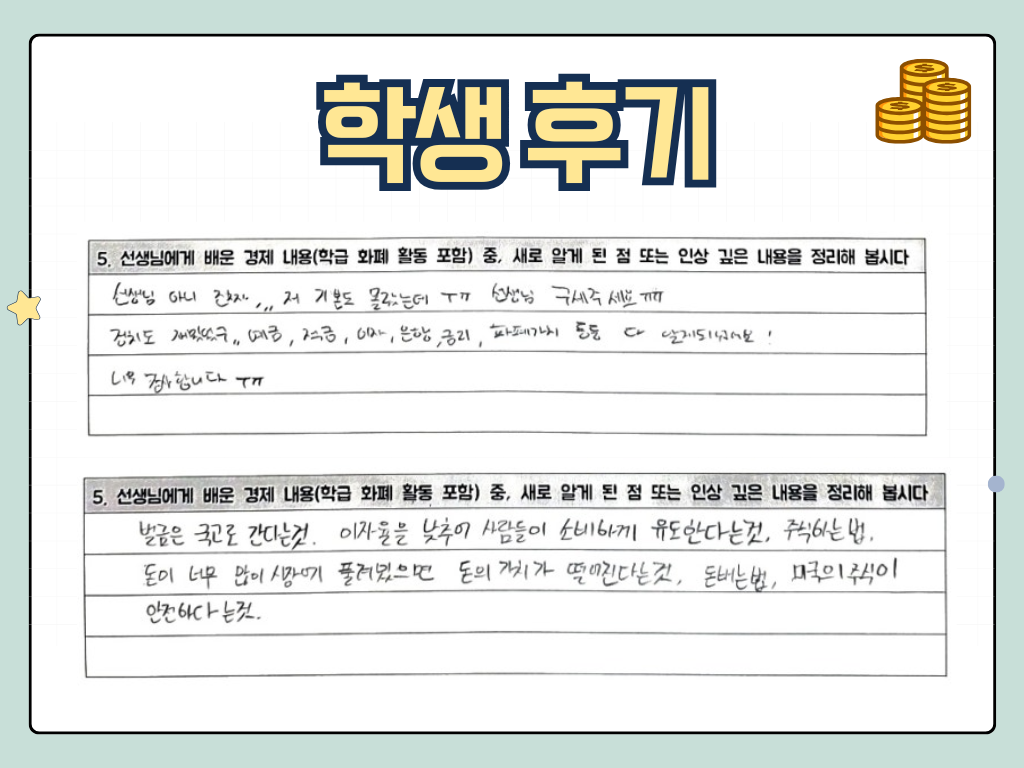 학생 후기
5. 선생님에게 배운 경제 내용(학급 화폐 활동 포함) 중, 새로 알게 된 점 또는 인상 깊은 내용을 정리해 봅시다
선생님 아니 진짜,,, 저 기본도 몰랐는데 ㅜㅠ 선생님 구세주세요 ㅠㅠ
정치도 재밌었구,, 예금, 적금, 이자, 은행, 금리, 화폐가치 등등 다 알게되었어요!
너무 감사합니다 ㅜㅠ
5. 선생님에게 배운 경제 내용(학급 화폐 활동 포함) 중, 새로 알게 된 점 또는 인상 깊은 내용을 정리해 봅시다
벌금은 국고로 간다는것. 이자율을 낮추어 사람들이 소비하게 유도한다는것, 주식하는 법,
돈이 너무 많이 시장에 풀려있으면 돈의 가치가 떨어진다는것, 돈버는법, 미국의 주식이
안전하다는것.